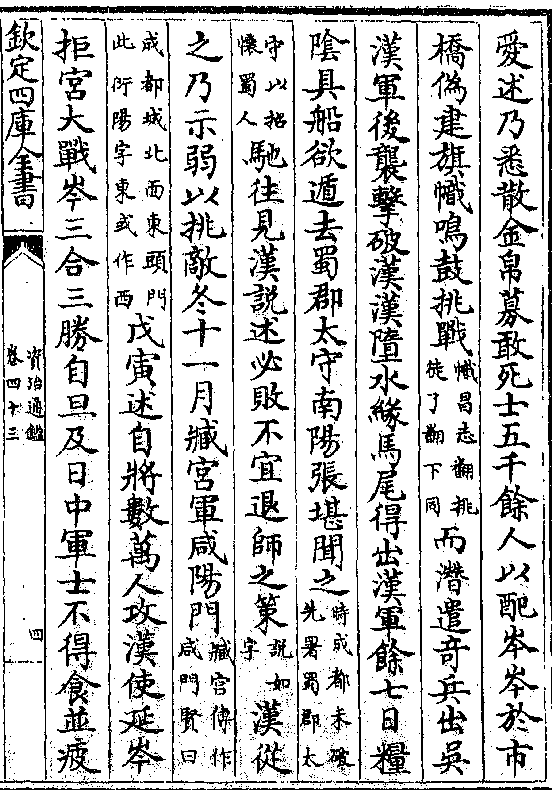 愛述乃悉散金帛募敢死士五千餘人以配岑岑於市
橋僞建旗幟鳴鼓挑戰幟昌志翻挑徒了翻下同而潛遣竒兵出吳
漢軍後襲擊破漢漢墮水緣馬尾得出漢軍餘七日糧
陰具船欲遁去蜀郡太守南陽張堪聞之時成都未破先署蜀郡太
守以招懷蜀人馳往見漢説述必敗不宜退師之策説如字漢從
之乃示弱以挑敵冬十一月臧宮軍咸陽門臧宮傳作咸門賢曰
成都城北面東頭門此所陽字東或作西戊寅述自將數萬人攻漢使延岑
拒宮大戰岑三合三勝自旦及日中軍士不得食並疲
欽定四庫全書
資治通鑑
卷四十三
四